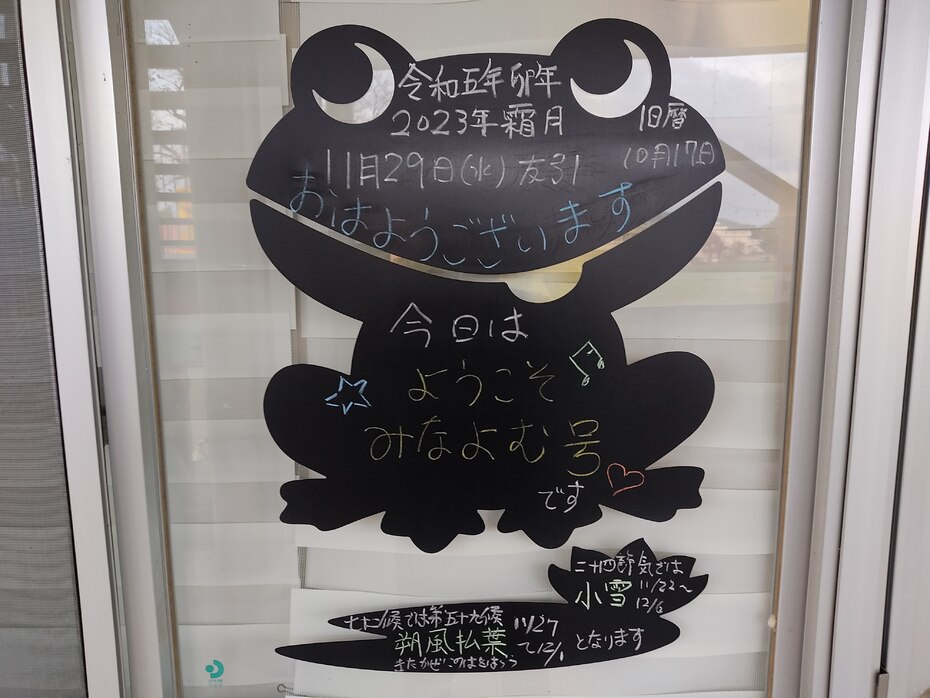 令和五年卯年
2023年霜月
旧暦
11月29日(水)友引
10月17日
おはようございます
今日は
ようこそ
みなよむ号
です
二十四節気では
小雪 11/22〜
12/6
七十二候では第五十九候
朔風払葉 11/27
〜12/1
となります
きたかぜこのはをはらう